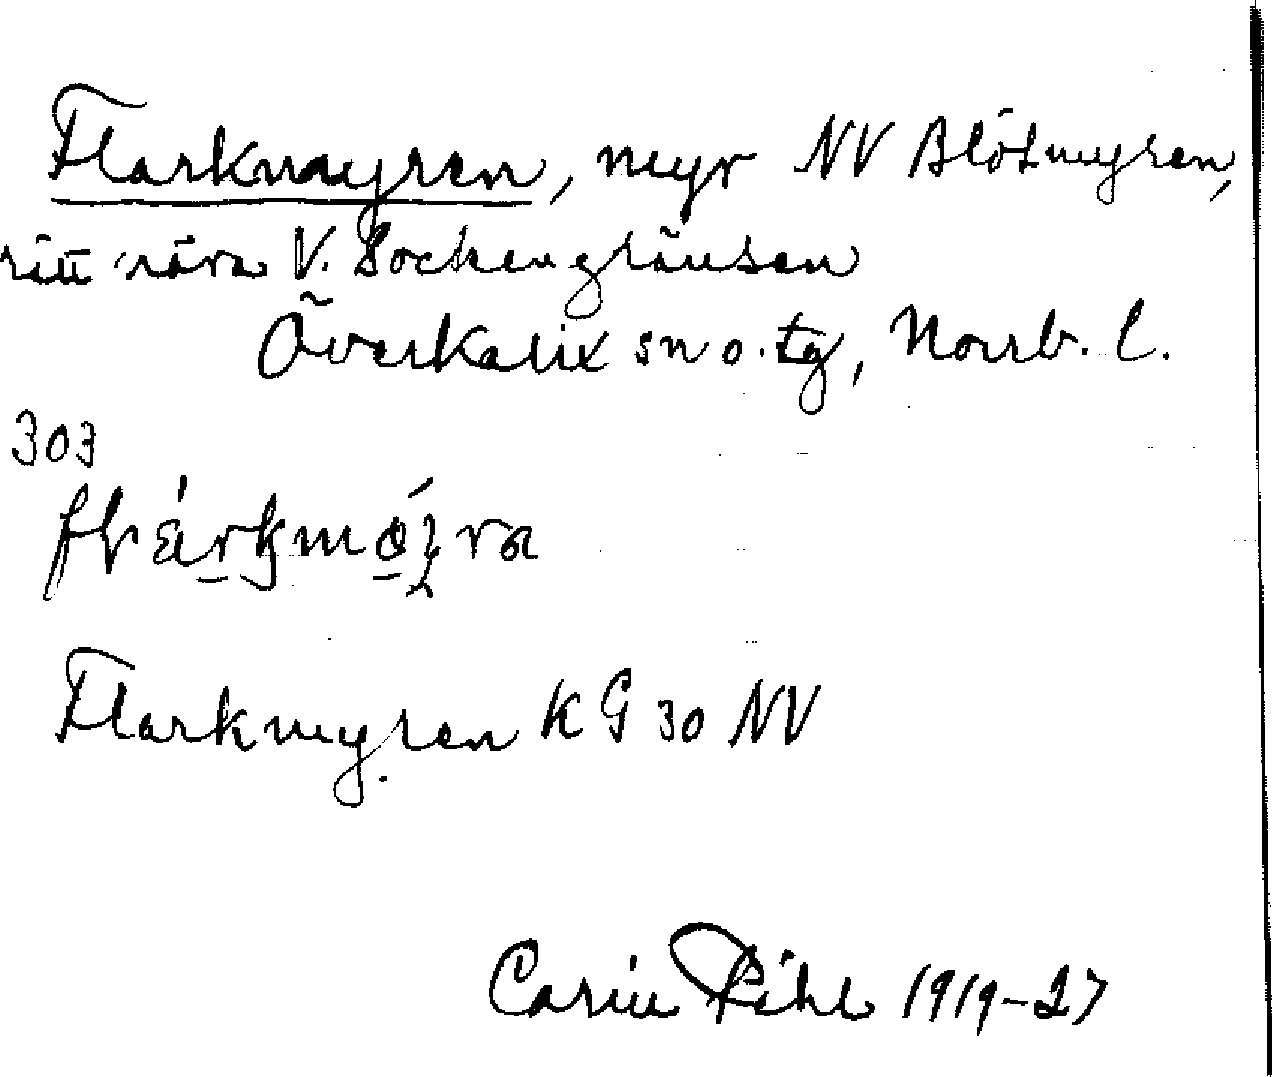 Flarkmyren, myr NV Blötmyren,
nära V. Sockengränsen
Överkalix sn o. tg, Norrb. l.
303
Flarkmyren KG 30 NV
Carin Pihl 1919-27